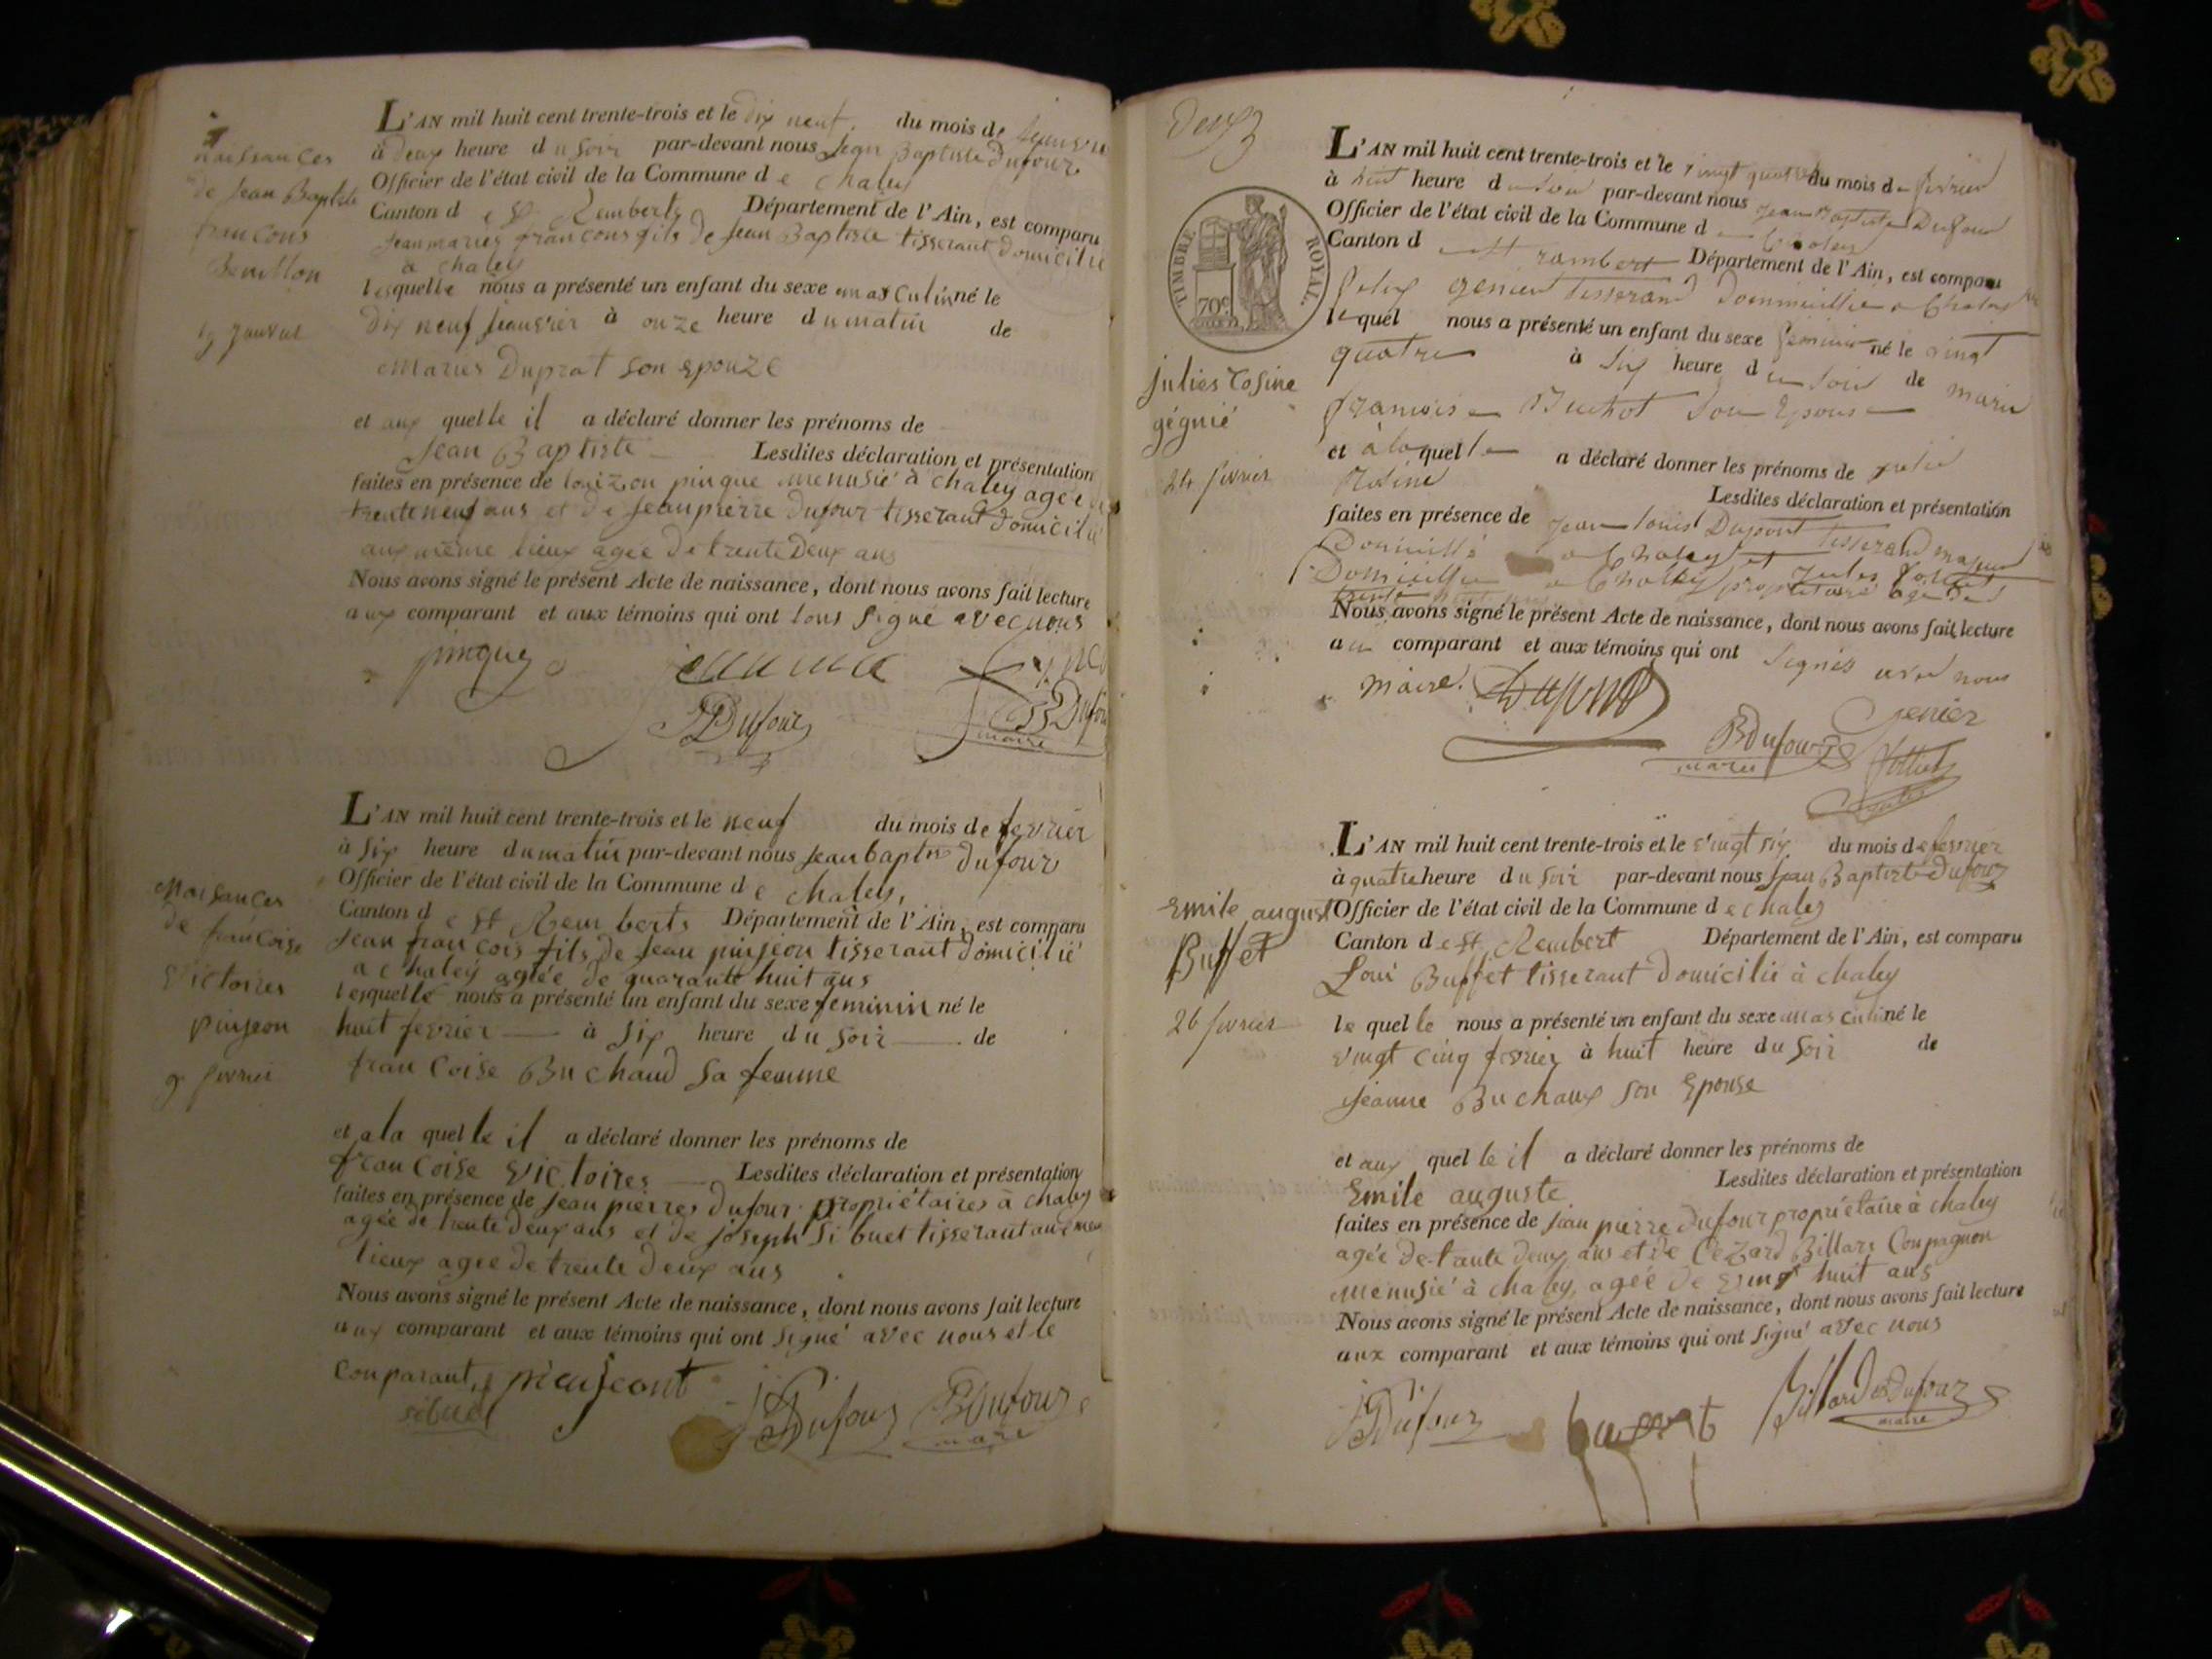 naissances
de Jean Baptiste
francons
19 janvier
L'AN mil huit cent trente-trois et le dix neuf du mois de
à deux heure du soir par-devant nous Jean Baptiste Dufour
Officier de l'état civil de la Commune de chaley
Canton de St Remberts Département de l'Ain, est comparu
Jean maries francons fils de Jean Baptiste tisserant domicilié
à chaley
lesquelle nous a présenté un enfant du sexe masculin né le
dix neuf à onze heure du matin de
Maries Duprat son epouze
et aux quelle il a déclaré donner les prénoms de
Jean Baptiste Lesdites déclaration et présentation
faites en présence de pingue menusié à chaley agée de
trente neuf ans et de Jean pierre dufour tisserant domicilié
aux même lieux agée de trente Deux ans
Nous avons signé le présent Acte de naissance, dont nous avons fait lecture
aux comparant et aux témoins qui ont tous signé avec nous
JPDufour
maire
Naisances
de francoise
Victoires
pinjeon
9 fevrier
L'AN mil huit cent trente-trois et le neuf du mois de fevrier
à six heure du matin par-devant nous Jean baptis dufour
Officier de l'état civil de la Commune de chaley,
Canton de St Remberts Département de l'Ain, est comparu
Jean francois fils de Jean pinjeon tisserant domicilié
a chaley agée de quarante huit ans
lesquelle nous a présenté un enfant du sexe feminin né le
huit fevrier à six heure du soir de
francoise Buchaud sa femme
et ala quelle il a déclaré donner les prénoms de
francoise Victoires Lesdites déclaration et présentation
faites en présence de Jean pierres dufour propriétaires à chaley
agée de trente deux ans et de joseph Sibuet tisserant aux meme
lieux agee de trente deux ans
Nous avons signé le présent Acte de naissance, dont nous avons fait lecture
aux comparant et aux témoins qui ont signé avec nous et le
comparant,
sibuet
JPDufour BDufour
maire
Deux
TIMBRE ROYAL.
70c
julies rosine
gégnié
24 fevrier
L'AN mil huit cent trente-trois et le vingt quatre du mois de fevrier
à huit heure du soir par-devant nous Jean Baptiste Dufour
Officier de l'état civil de la Commune de Chaley
Canton de St rambert Département de l'Ain, est comparu
genier tisserand Domicillié a Chaley
lequel nous a présenté un enfant du sexe feminin né le vingt
quatre à six heure du soir de marie
francoise Buchot son Epouse
et à laquelle a déclaré donner les prénoms de julie
Rosine Lesdites déclaration et présentation
faites en présence de Jean louis Dupont tisserand majeur
Domicillié a Chaley et
Domicillié a Chaley propriétaire age de
Nous avons signé le présent Acte de naissance, dont nous avons fait lecture
au comparant et aux témoins qui ont signés avec nous
maire. Dupont
genier
BDufour
maire
Emile august
Buffet
26 fevrier
L'AN mil huit cent trente-trois et le vingt six du mois de fevrier
à quatre heure du soir par-devant nous Jean Baptiste Dufour
Officier de l'état civil de la Commune de chaley
Canton de St Rembert Département de l'Ain, est comparu
Loui Buffet tisserant domicilié à chaley
lequelle nous a présenté un enfant du sexe masculin né le
vingt cinq fevrier à huit heure du soir de
jeanne Buchaux son Epouse
et aux quelle il a déclaré donner les prénoms de
Emile auguste Lesdites déclaration et présentation
faites en présence de Jean pierre Dufour propriétaire à chaley
agée de trante deux ans et de Cézard Billard Compagnon
menusié à chaley agée de vingt huit ans
Nous avons signé le présent Acte de naissance, dont nous avons fait lecture
aux comparant et aux témoins qui ont signé avec nous
JPDufour Billard BDufour
maire